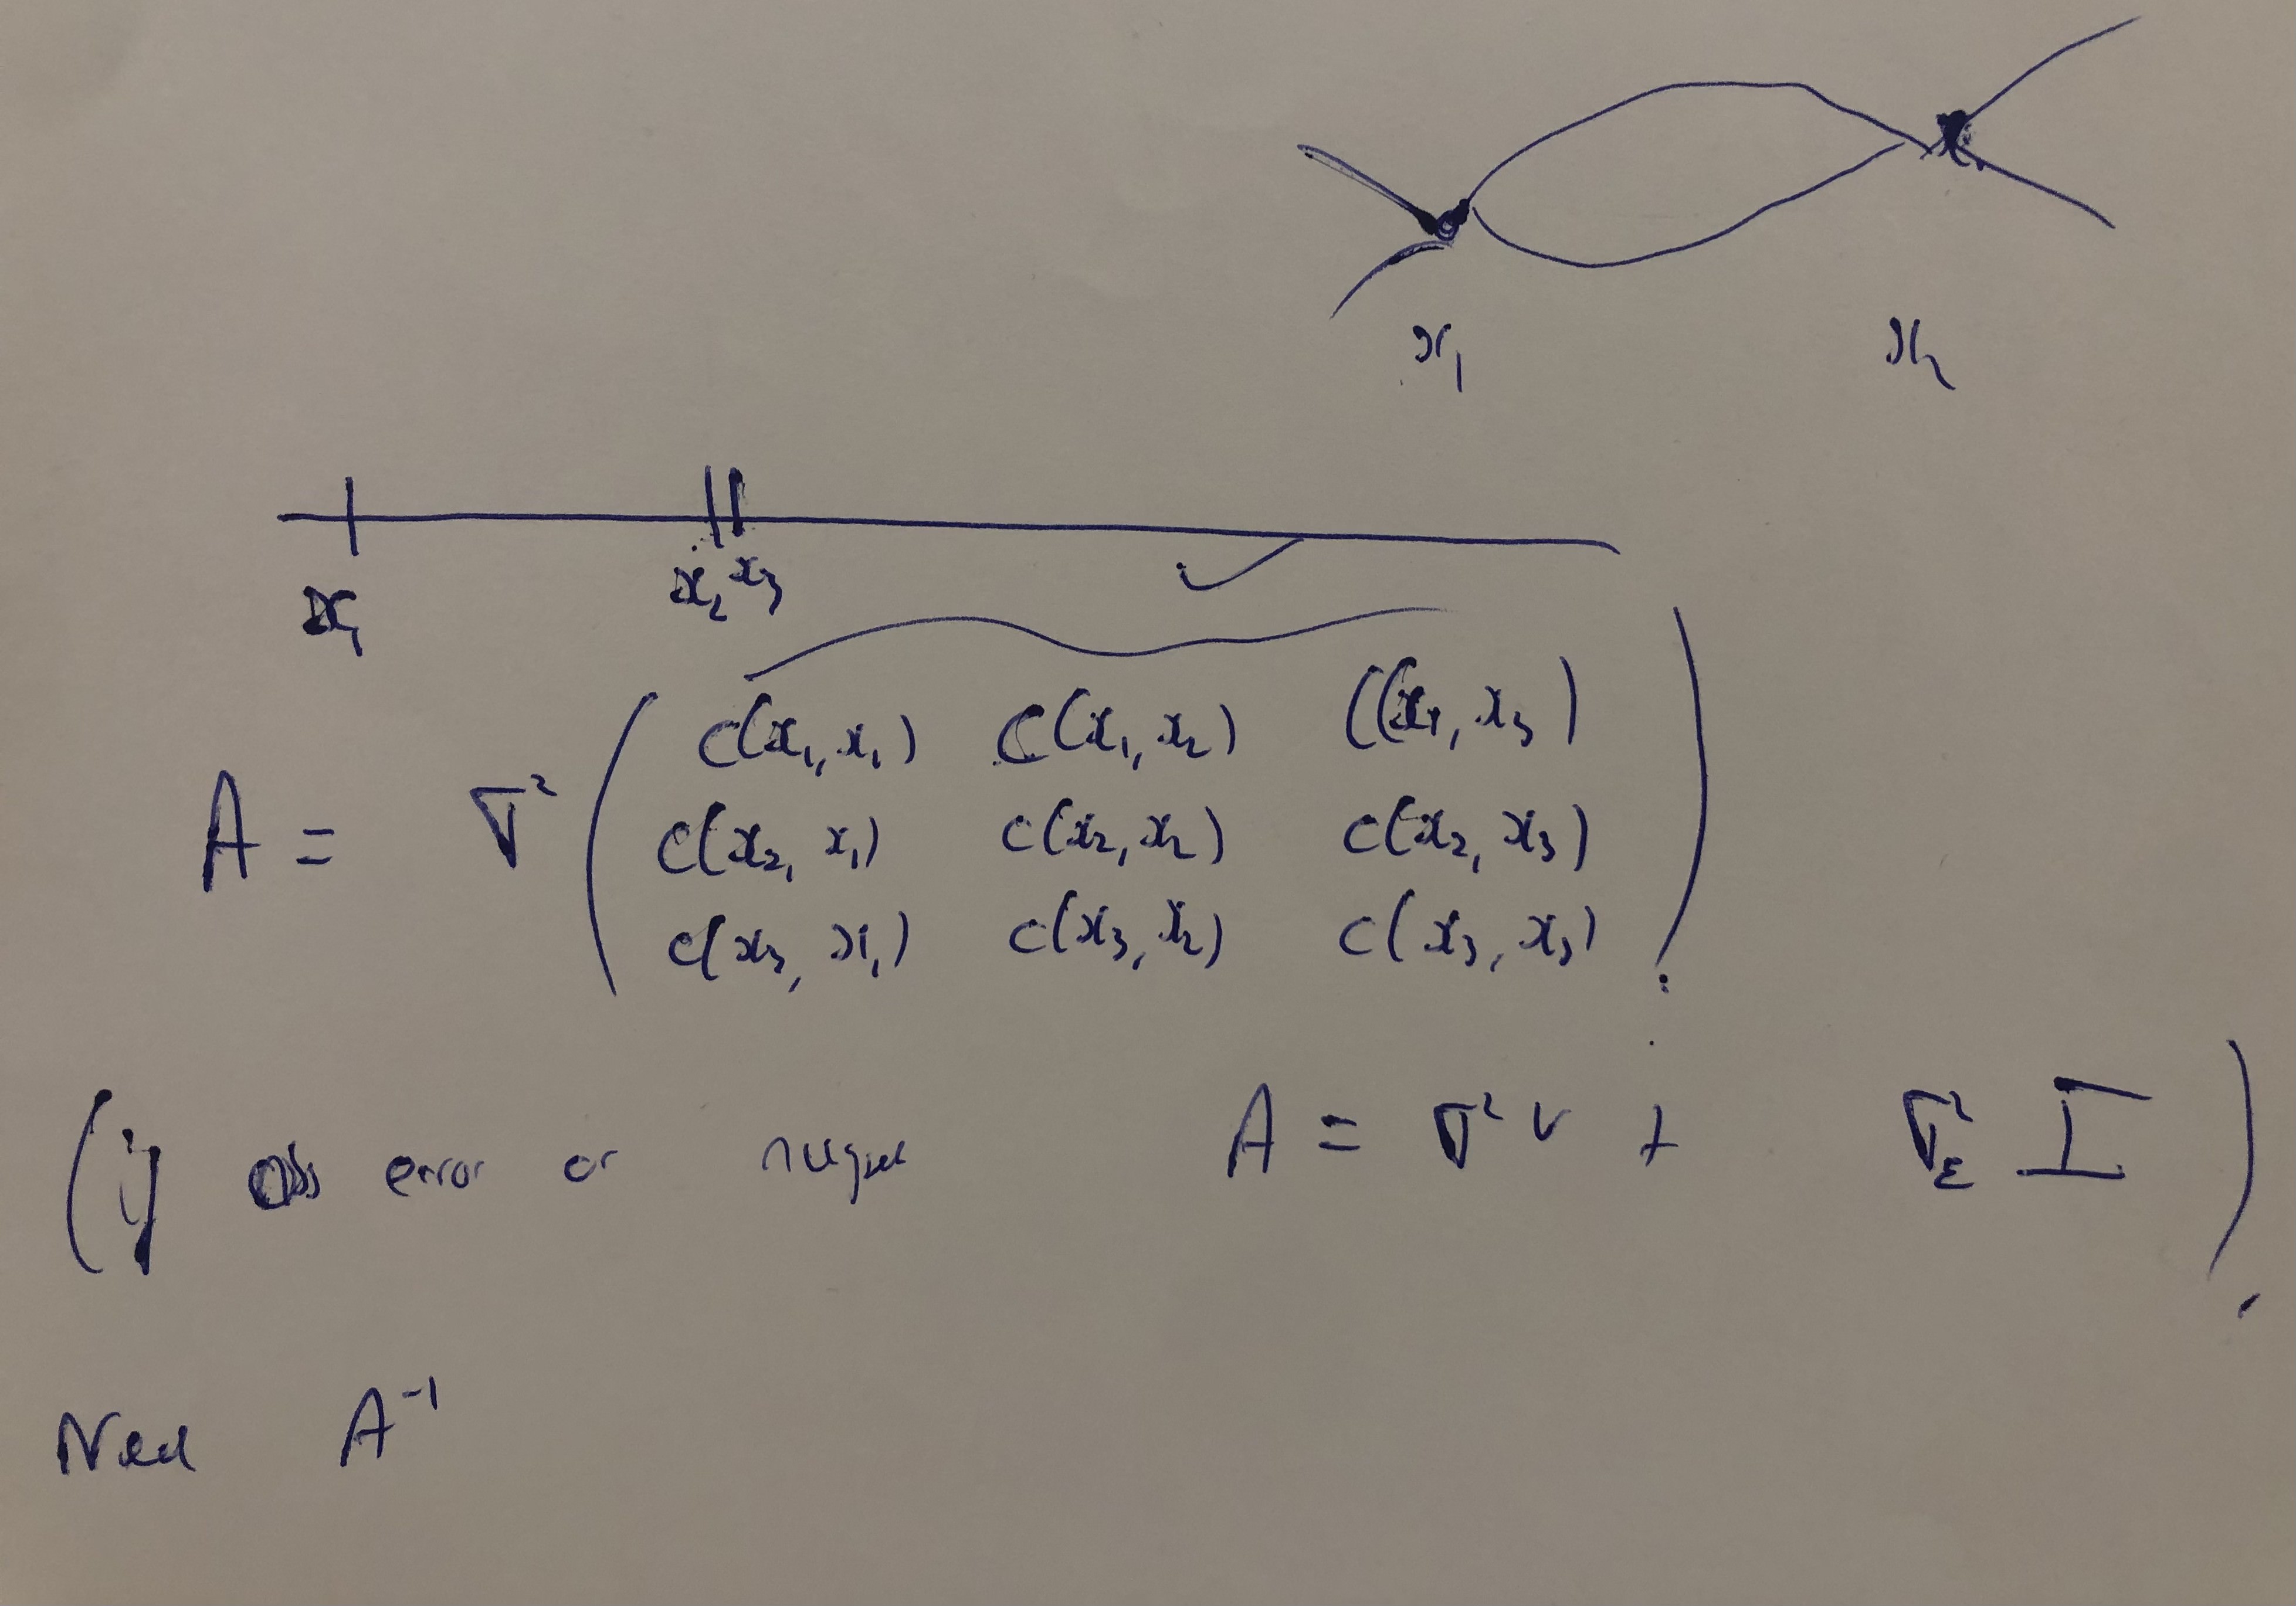 x₁ x₂
x₁ x₂ x₃
V
A = σ² ( C(x₁, x₁) C(x₁, x₂) C(x₁, x₃)
C(x₂, x₁) C(x₂, x₂) C(x₂, x₃)
C(x₃, x₁) C(x₃, x₂) C(x₃, x₃) ) .
(if obs error or A = σ² V + σ²_ε I ) .
Need A⁻¹